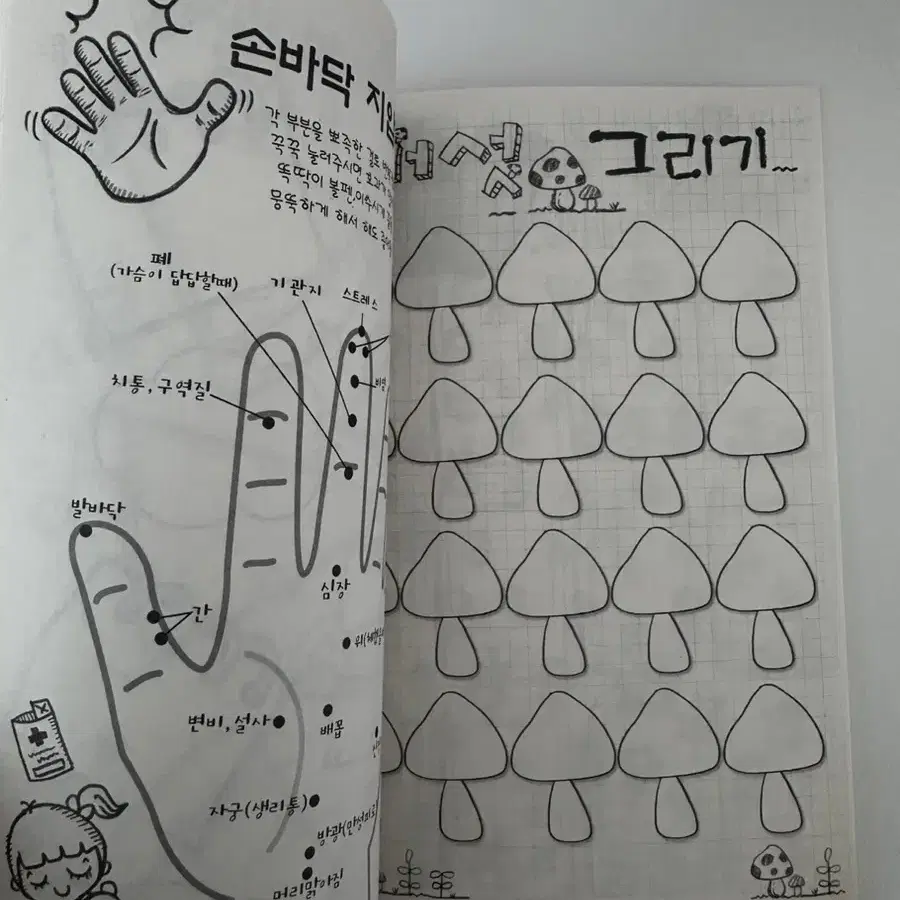 손바닥 지압
각 부분을 뾰족한 걸로
꾹꾹 눌러주시면 효과가
똑딱이 볼펜, 이쑤시개
뭉뚝하게 해서 해도
폐
(가슴이 답답할때)
기관지
스트레스
치통, 구역질
발바닥
간
심장
변비, 설사
배꼽
자궁(생리통)
방광(만성피로
머리맑아짐
버섯 그리기